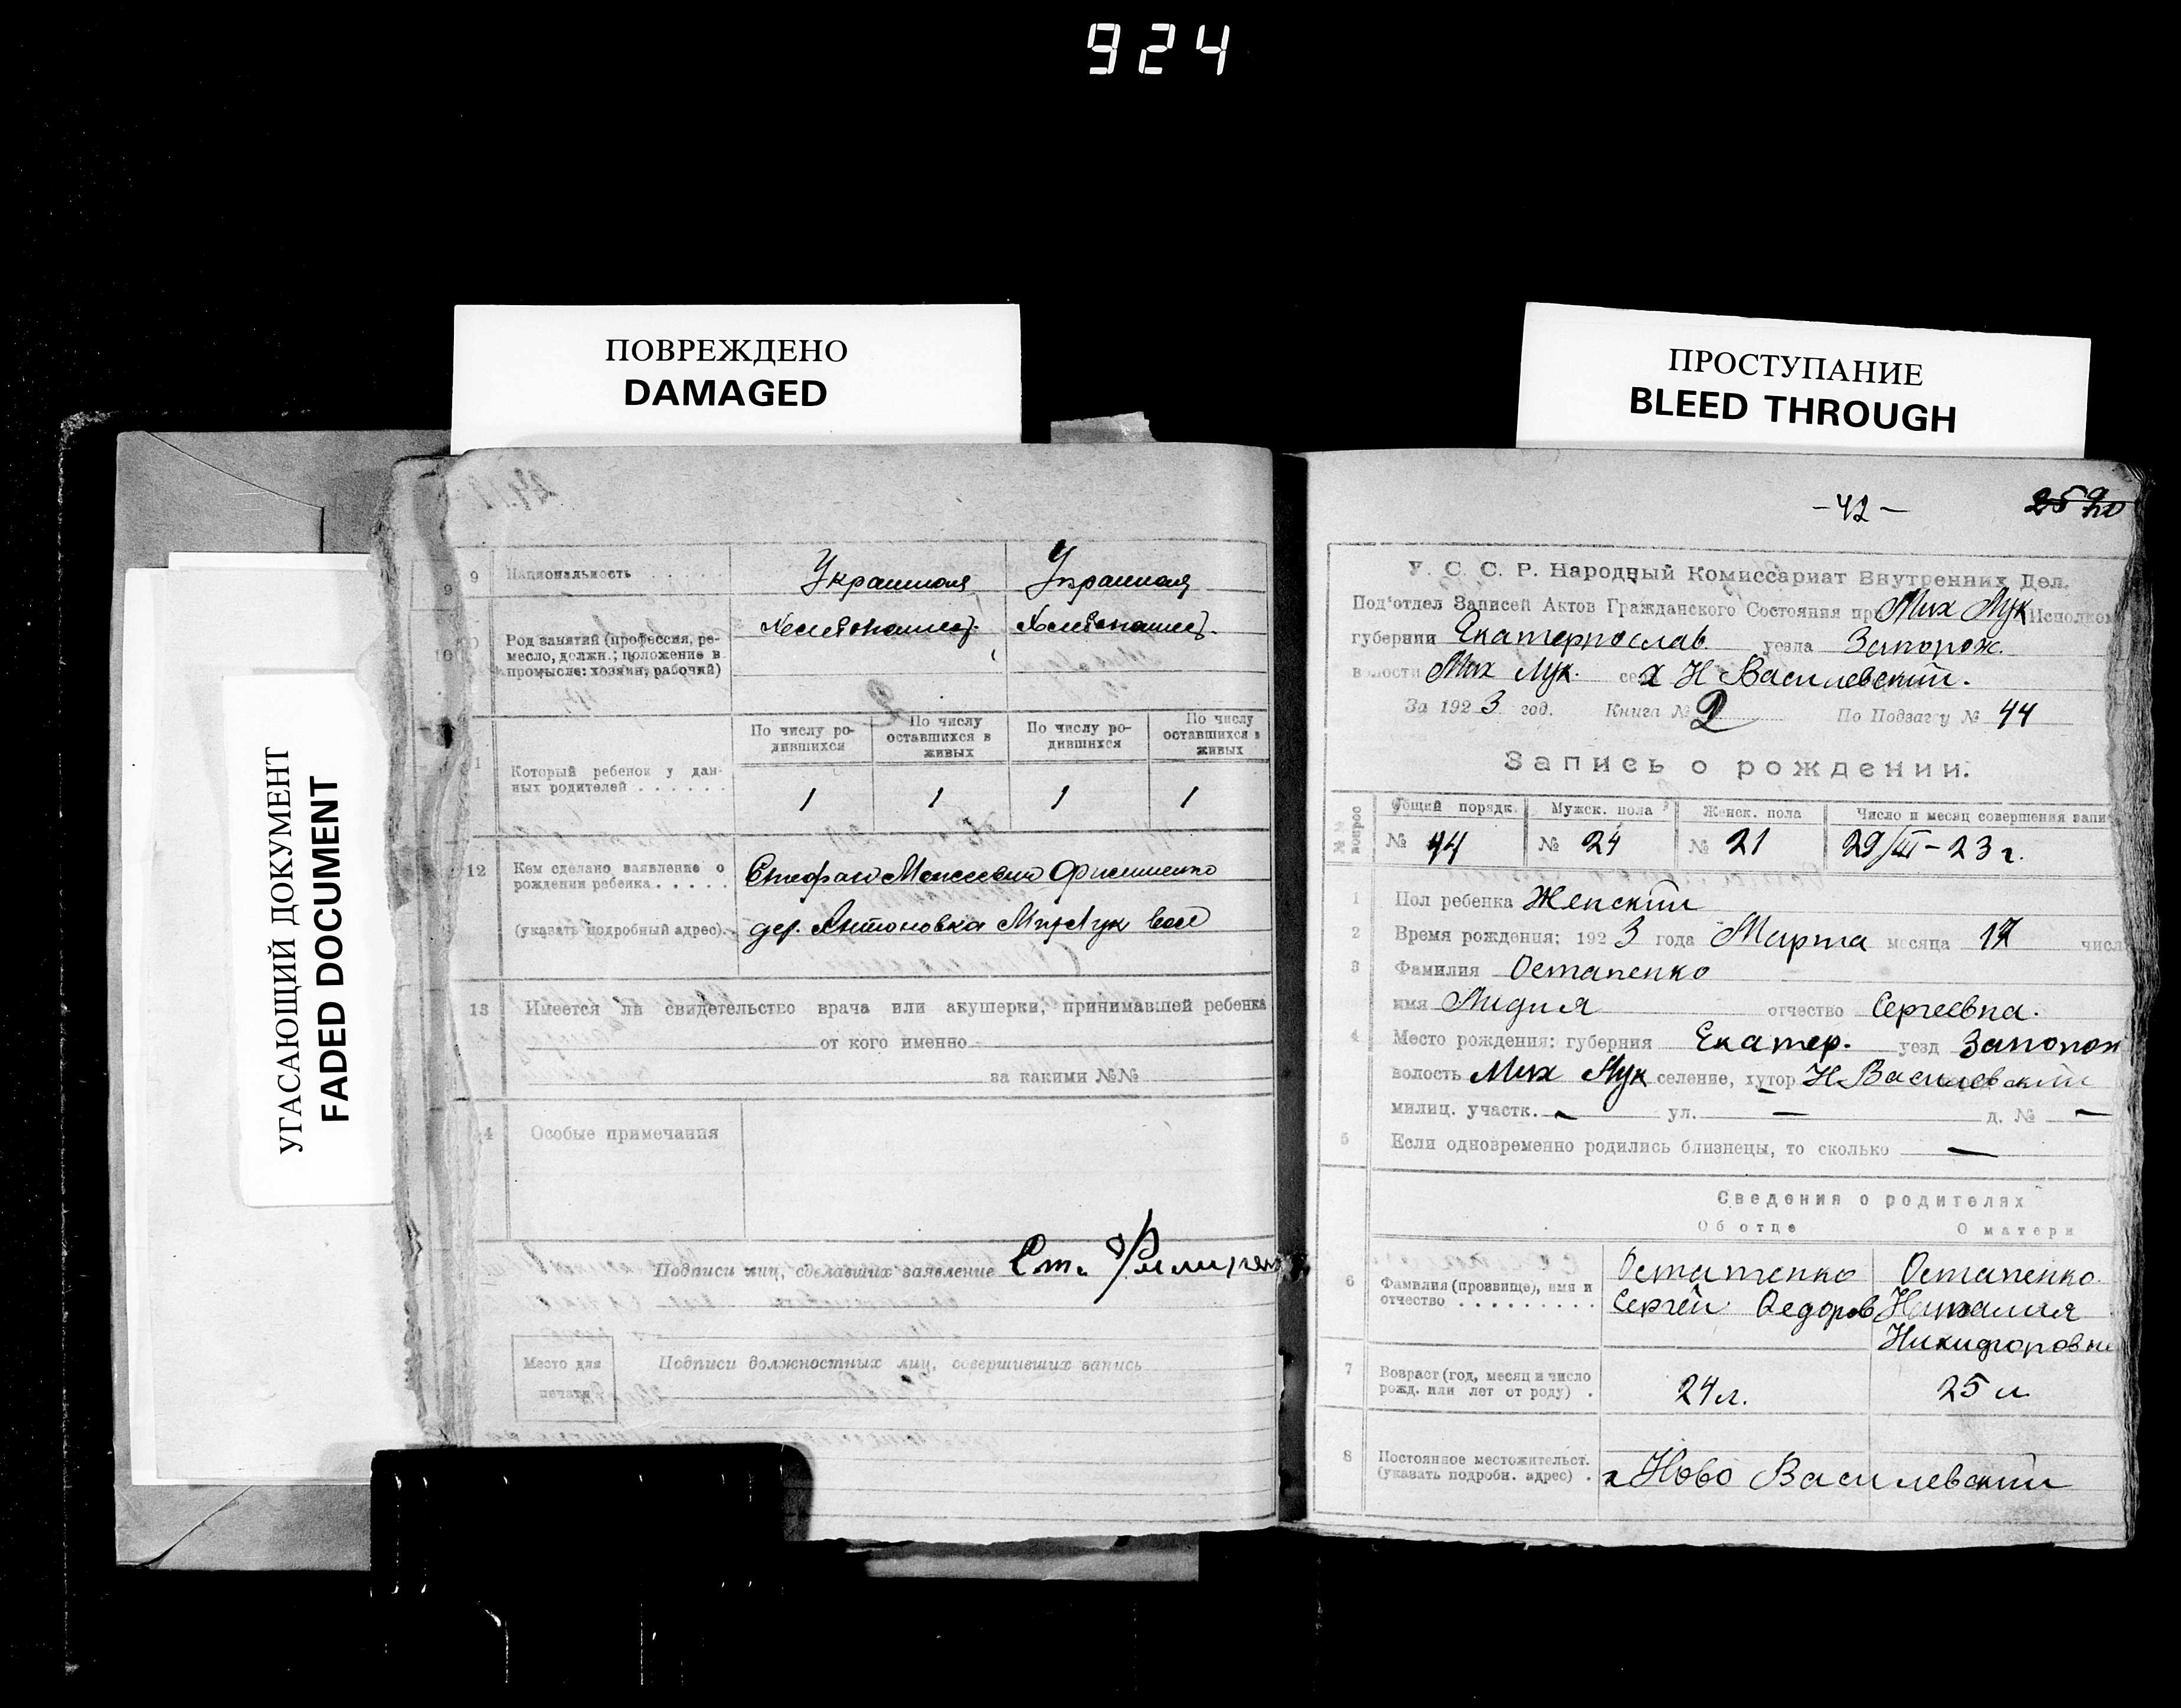 924
ПОВРЕЖДЕНО
DAMAGED
ПРОСТУПАНИЕ
BLEED THROUGH
УГАСАЮЩИЙ ДОКУМЕНТ
FADED DOCUMENT
9 Национальность
10 Род занятий (профессия, ре-
месло, должн.; положение в
промысле: хозяин, рабочий)
По числу ро-
дившихся
По числу
оставшихся в
живых
По числу ро-
дившихся
По числу
оставшихся в
живых
Который ребенок у дан-
ных родителей . . . . . . 1 1 1 1
12 Кем сделано заявление о
рождении ребенка . . . . .
(указать подробный адрес). дер. Антоновка
13 Имеется ли свидетельство врача или акушерки, принимавшей ребенка
от кого именно
за какими №№
Особые примечания
Подписи лиц, сделавших заявление Ст.
Место для
печати
Подписи должностных лиц, совершивших запись
-42-
У. С. С. Р. Народный Комиссариат Внутренних Дел.
Под'отдел Записей Актов Гражданского Состояния при Мих Лук Исполком
губернии Екатеринослав уезда Запорож.
волости Мих Лук. села х Н Василевский.
За 1923 год. Книга № 2 По Подзагу № 44
Запись о рождении.
№№ вопрос
Общий порядк. Мужск. пола Женск. пола Число и месяц совершения запи
№ 44 № 24 № 21 29/III-23 г.
1 Пол ребенка Женский
2 Время рождения: 1923 года Марта месяца 17 числ
3 Фамилия Остапенко
имя Лидия отчество Сергеевна.
4 Место рождения: губерния Екатер. уезд Запорож
волость Мих Лук селение, хутор Н Василевский
милиц. участк. - ул. - д. № -
5 Если одновременно родились близнецы, то сколько -
Сведения о родителях
Об отце О матери
6 Фамилия (прозвище), имя и
отчество . . . . . . . . .
Остапенко
Сергей Федоров
Остапенко
Наталия
Никифоровна
7 Возраст (год, месяц и число
рожд. или лет от роду) . 24 л. 25 л
8 Постоянное местожительст.
(указать подробн. адрес) . х Ново Василевский